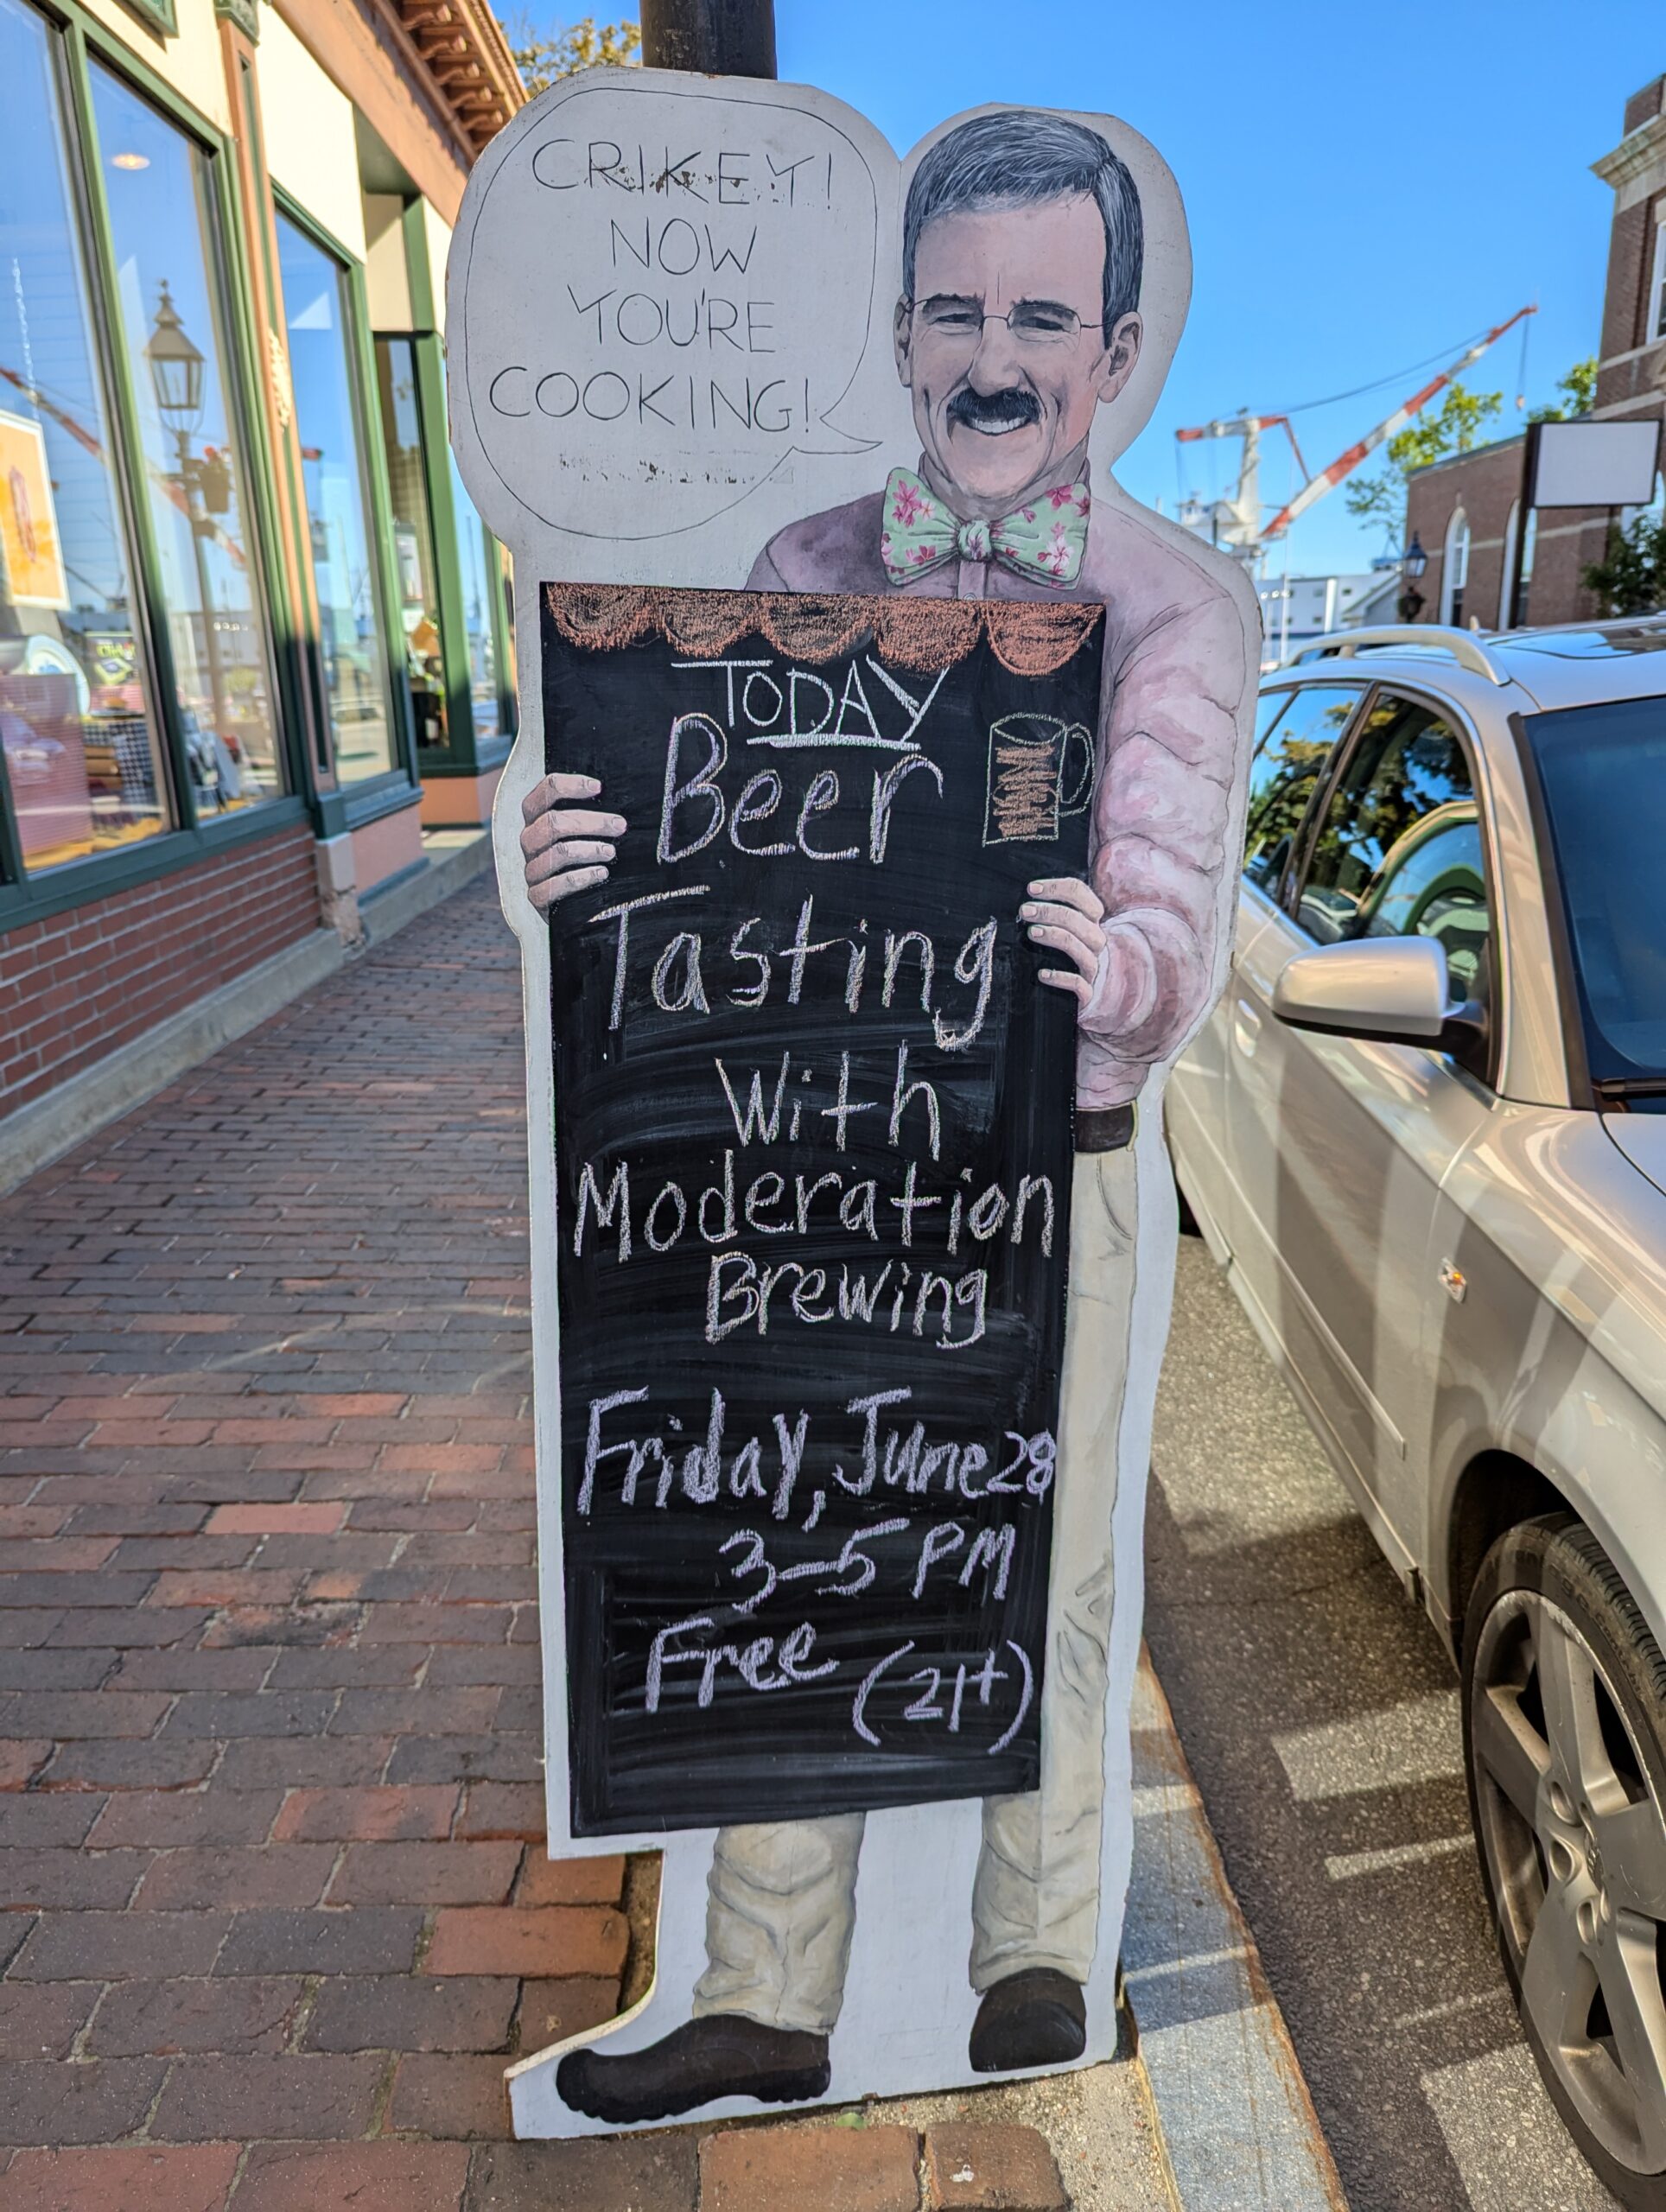 CRIKEY!
NOW
YOU'RE
COOKING!
TODAY
Beer
Tasting
With
Moderation
Brewing
Friday, June 28
3-5 PM
Free (21+)